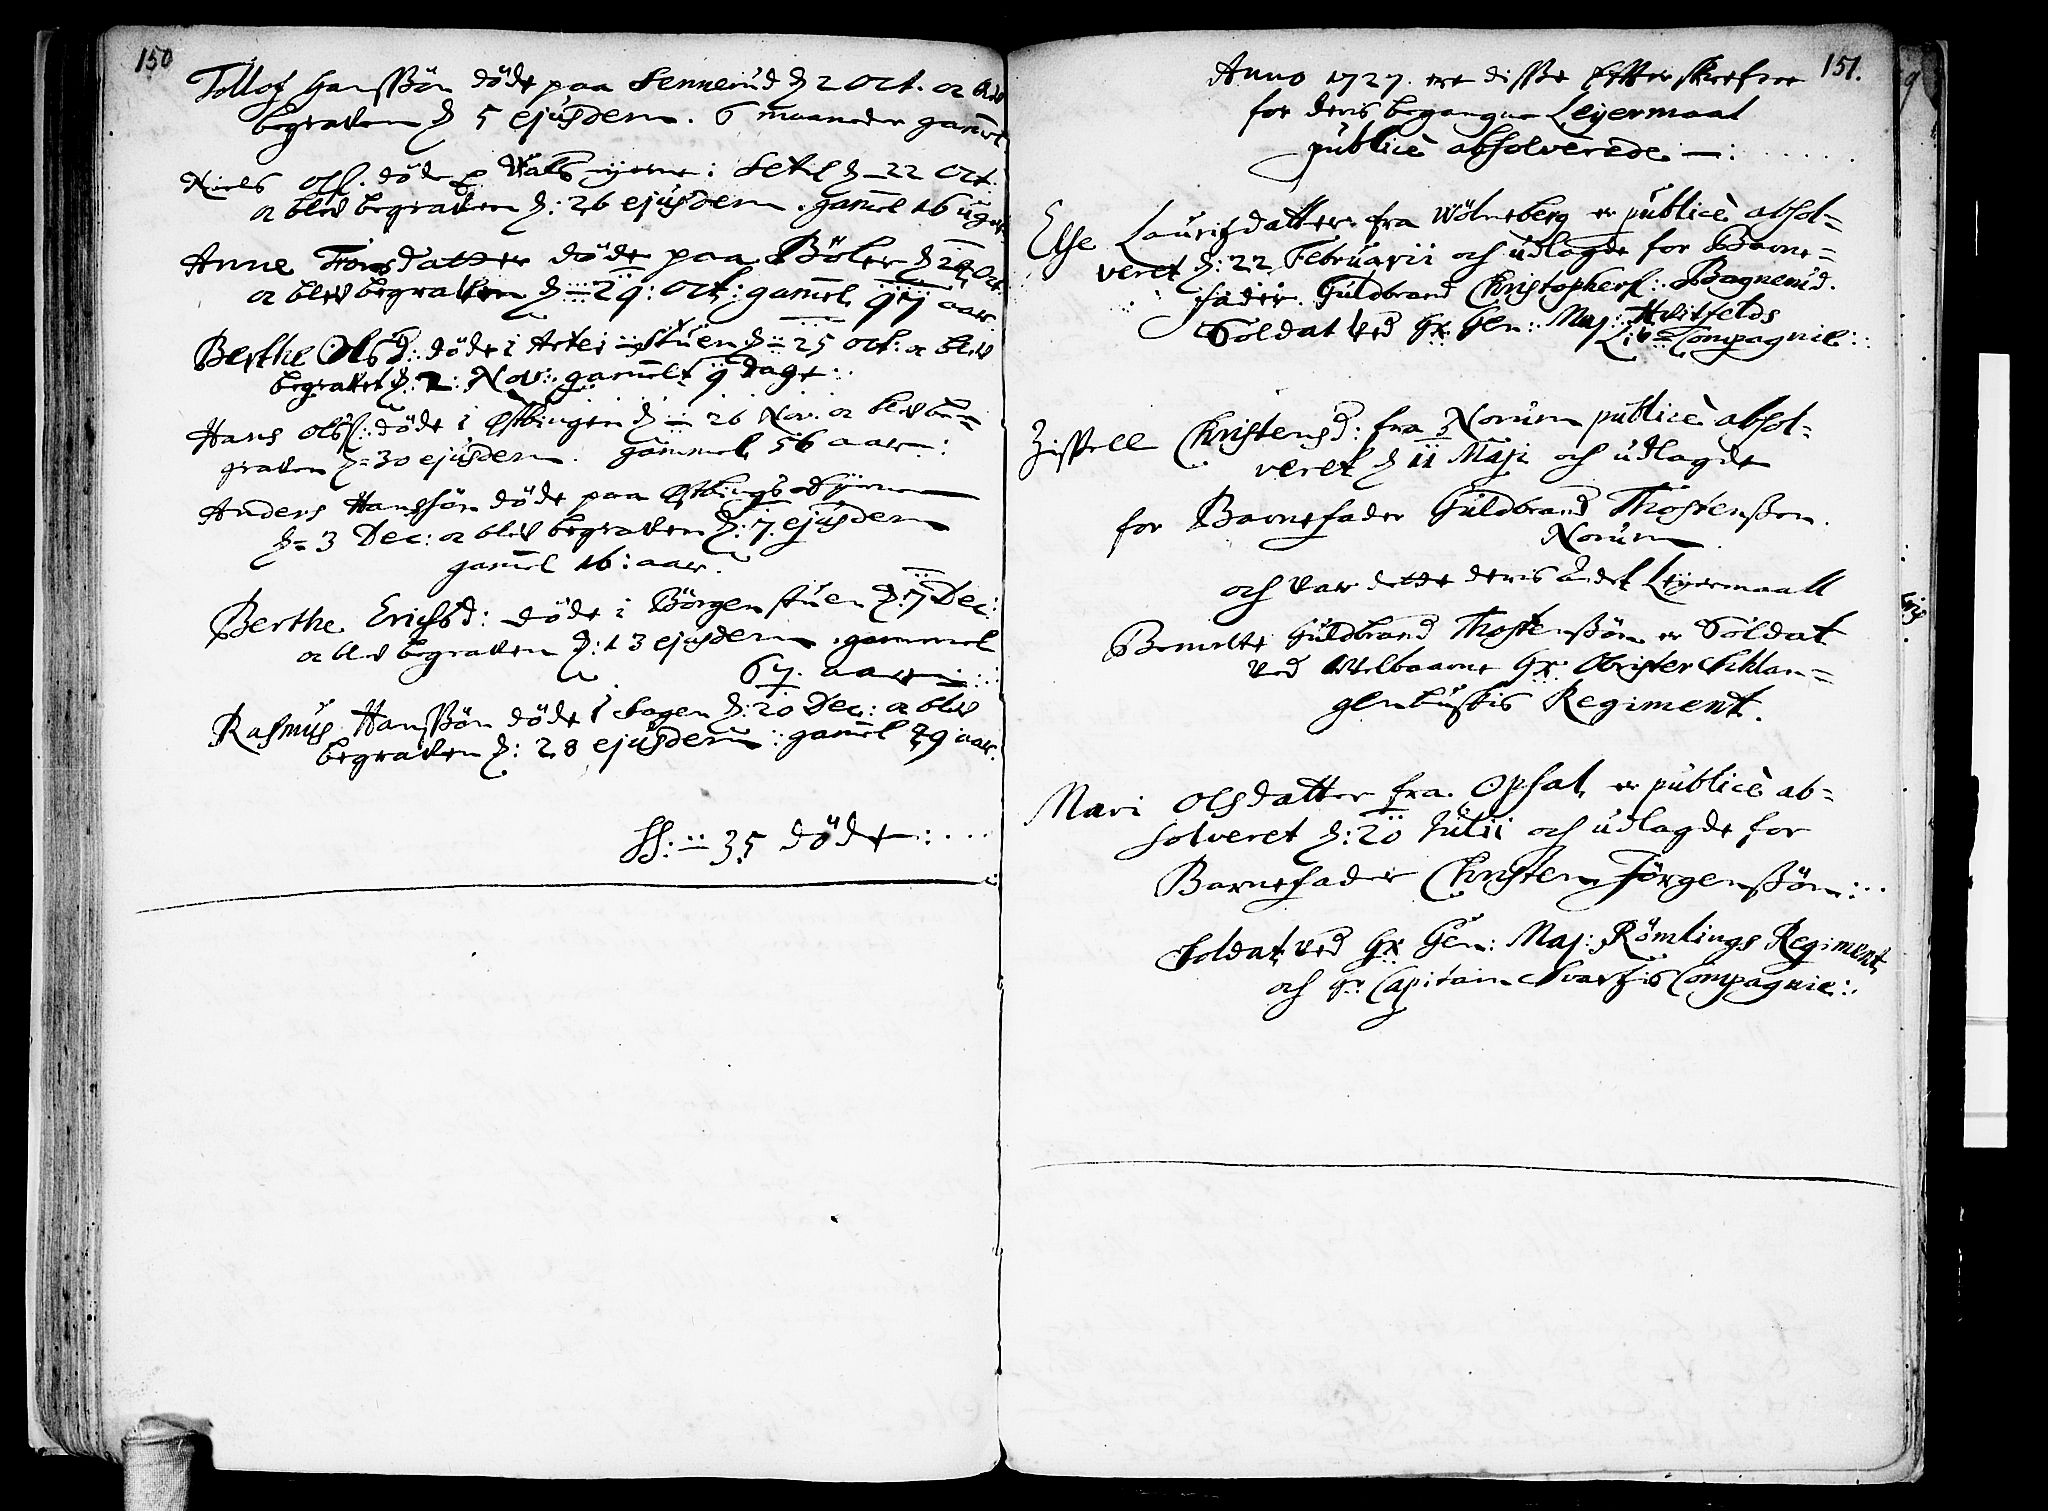 150
Tollof Hanssøn døde paa Sennerud d 2 Oct. oc blev
begraven d 5 ejusdem. 6 maaneder gammel
Niels Ols. døde p Vals-yerne: Setel d 22 Oct.
oc blev begraven d: 26 ejusdem. gamel 16 uger
Anne Tronsdatter døde paa Böler d
oc blev begraven d 29: Oct: gamel aar
Berthe Olsd: døde i stuen d 25 Oct: oc blev
begravet d. 2: Nov: gamel 9 dage
Hans Ols: døde i Østbingen d 26 Nov: oc blev be=
graven d 30 ejusdem. gammel 56 aar:
Anders Hanssøn døde paa
d 3 Dec: oc blev begraven d: 7. ejusdem
gamel 16: aar.
Berthe Erichsd: døde i Börgenstuen d: 7 Dec:
oc blev begraven d: 13 ejusdem. gammel
67. aar
Rasmus Hanssøn døde i Hagen d: 20 Dec: oc blev
begraven d: 28 ejusdem: gamel 29 aar.
SS: 35 døde:
151.
Anno 1727. ere disse Efterskrefne
for deris begangne Leyermaal
publicè absolverede:
Else Lauritzdatter fra Wölneberg er publicè absol=
veret d: 22 Februarii och udlagde for Barne=
fader Guldbrand Christophers: Bagnerud.
Soldat ved Hr. Gen: Maj: Hvitfelds
Liv=Compagnie:
Zissell Christensd: fra Norum publicè absol=
veret d 11 Maji och udlagde
for Barnefader Guldbrand Thostensøn.
Norum
och var dette deris andet Leyermaall
Bemelte Guldbrand Thostenssøn er Soldat
ved Welbaarne Hr. Obrister Schlan=
genbuskis Regiment.
Mari Olsdatter fra Opsal, er publicè ab=
solveret d: 20 Julii och udlagde for
Barnefader Christen Jörgenssøn:
Soldat ved Hr Gen: Maj: Römlings Regiment
och Hr: Capitain Svartzis Compagnie: